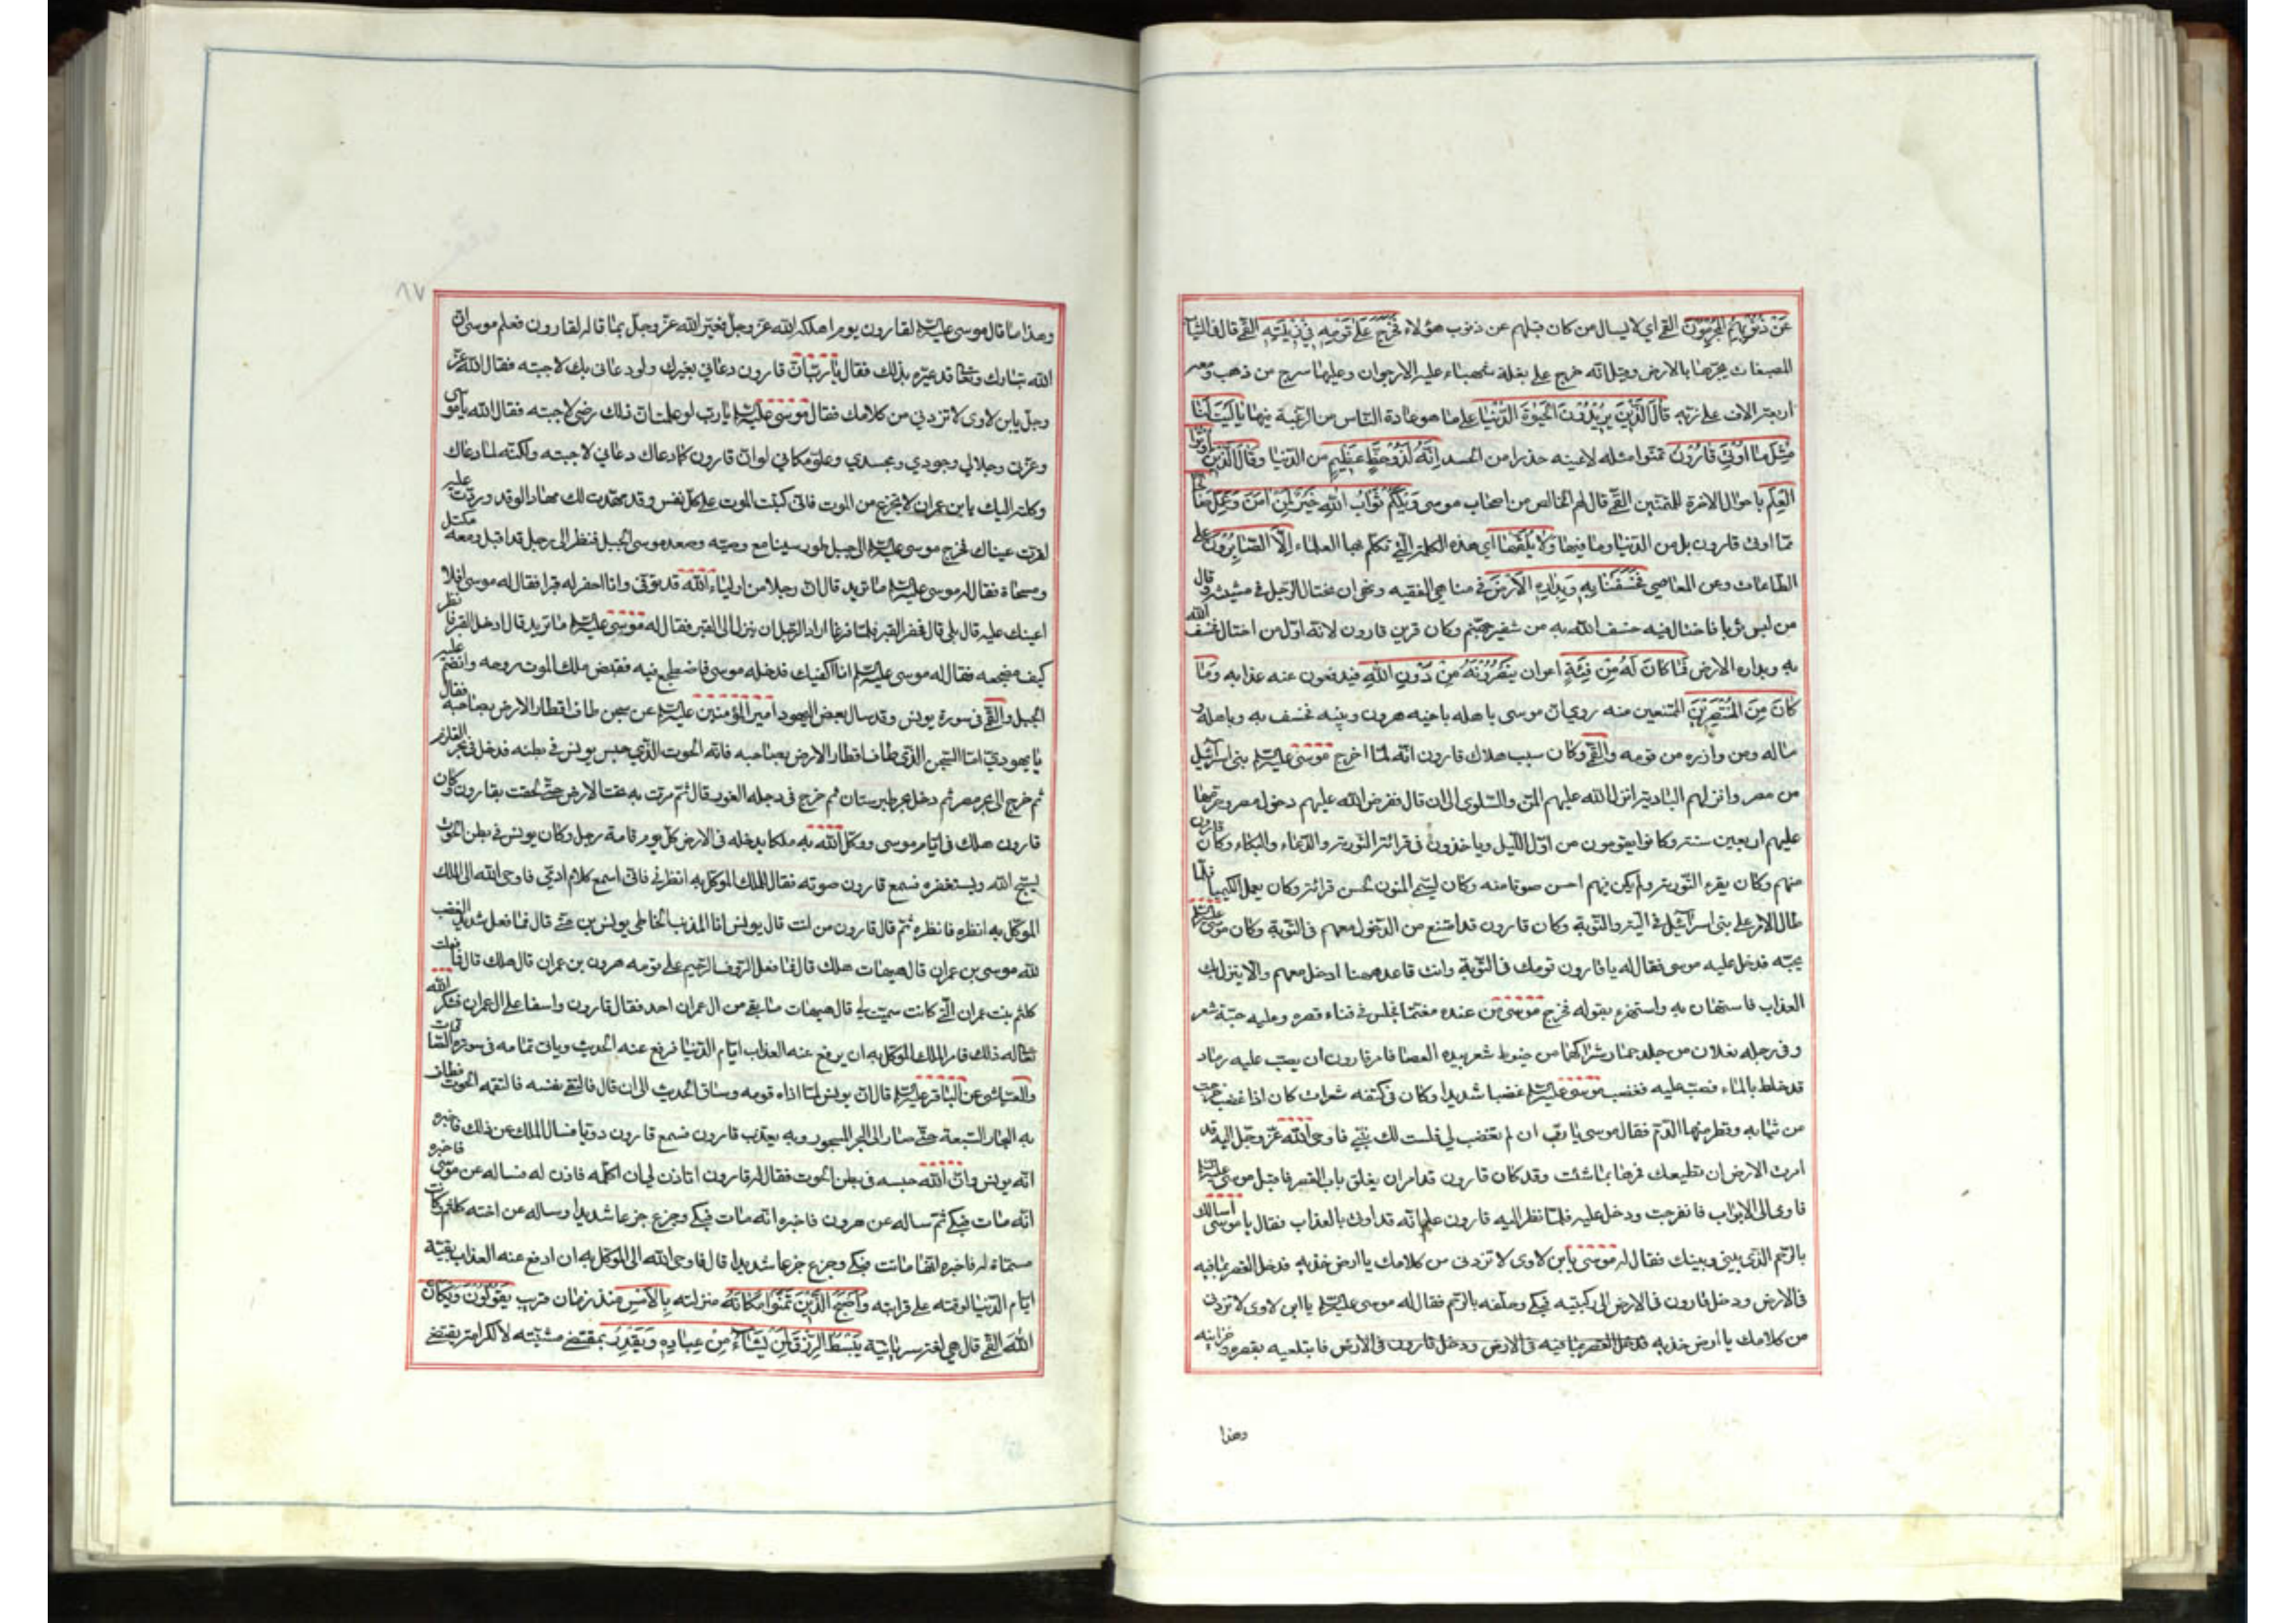 عَنْ ذُنُوبِهِمُ الْمُجْرِمُونَ القمّي اي لا يسال من كان قبلهم عن ذنوب هؤلاء فَخَرَجَ عَلَى قَوْمِهِ فِي زِينَتِهِ القمّي قال في الثياب
المصبغات يجرّها بالارض وقيل انّه خرج على بغلة شهباء عليه الارجوان وعليها سرج من ذهب ومعه
اربعة الاف على زيّه قَالَ الَّذِينَ يُرِيدُونَ الْحَيوةَ الدُّنْيَا على ما هو عادة النّاس من الرّغبة فيها يَا لَيْتَ لَنَا
مِثْلَ مَا اُوتِيَ قَارُونُ تمنّوا مثله لا عينه حذرا من الحسد اِنَّهُ لَذُو حَظٍّ عَظِيمٍ من الدّنيا وَقَالَ الَّذِينَ اُوتُوا
الْعِلْمَ باحوال الاخرة للمتمنّين القمّي قال لهم الخالص من اصحاب موسى وَيْلَكُمْ ثَوَابُ اللهِ خَيْرٌ لِمَنْ آمَنَ وَعَمِلَ صَالِحًا
ممّا اوتي قارون بل من الدّنيا وما فيها وَلَا يُلَقَّيهَا اي هذه الكلمة الّتي تكلّم بها العلماء اِلَّا الصَّابِرُونَ على
الطّاعات وعن المعاصي فَخَسَفْنَا بِهِ وَبِدَارِهِ الْاَرْضَ في مناهي الفقيه ونهى ان يختال الرّجل في مشيته وقال
من لبس ثوبا فاختال فيه خسف الله به من شفير جهنّم وكان قرين قارون لانّه اوّل من اختال فخسف الله
به وبداره الارض فَمَا كَانَ لَهُ مِنْ فِئَةٍ اعوان يَنْصُرُونَهُ مِنْ دُونِ اللهِ فيدفعون عنه عذابه وَمَا
كَانَ مِنَ الْمُنْتَصِرِينَ الممتنعين منه روي انّ موسى باهله باخيه هرون وبنيه فخسف به وباهله و
ماله ومن وازره من قومه والقمّي وكان سبب هلاك قارون انّه لمّا اخرج موسى عليه السّلم بني اسرآئيل
من مصر وانزلهم البادية انزل الله عليهم المنّ والسّلوى الى ان قال ففرض الله عليهم دخول مصر وحرّمها
عليهم اربعين سنة وكانوا يقومون من اوّل اللّيل وياخذون في قرائة التّورية والدّعاء والبكاء وكان قارون
منهم وكان يقرء التّورية ولم يكن فيهم احسن صوتا منه وكان يسمّى المنون لحسن قرائته وكان يعمل الكيميا فلمّا
طال الامر على بني اسرآئيل في التّيه والتّوبة وكان قارون قد امتنع من الدّخول معهم في التّوبة وكان موسى عليه السّلم
يحبّه فدخل عليه موسى فقال له يا قارون قومك في التّوبة وانت قاعد ههنا ادخل معهم والّا ينزل بك
العذاب فاستهان به واستهزء بقوله فخرج موسى من عنده مغتمّا فجلس في فناء قصره وعليه جبّة شعر
وفي رجله نعلان من جلد حمار شراكهما من خيوط شعر بيده العصا فامر قارون ان يصبّ عليه رماد
قد خلط بالماء فصبّ عليه فغضب موسى عليه السّلم غضبا شديدا وكان في كتفه شعرات كان اذا غضب خرجت
من ثيابه وقطر منها الدّم فقال موسى يا ربّ ان لم تغضب لي فلست لك بنبيّ فاوحى الله عزّ وجلّ اليه قد
امرت الارض ان تطيعك فمرها بما شئت وقد كان قارون قد امر ان يغلق باب القصر فاقبل موسى عليه السّلم
فاومى الى الابواب فانفرجت ودخل عليه فلمّا نظر اليه قارون علم انّه قد اوتي بالعذاب فقال يا موسى اسالك
بالرّحم الّذي بيني وبينك فقال له موسى يا بن لاوى لا تزدني من كلامك يا ارض خذيه فدخل القصر بما فيه
في الارض ودخل قارون في الارض الى ركبتيه فبكى وحلّفه بالرّحم فقال له موسى عليه السّلم يا ابن لاوى لا تزدني
من كلامك يا ارض خذيه فدخل القصر بما فيه في الارض ودخل قارون في الارض فابتلعيه بقصره وخزاينه
وهذا
٨٧
وهذا ما قال موسى عليه السّلم لقارون يوم اهلكه الله عزّ وجلّ فعيّره الله عزّ وجلّ بما قاله لقارون فعلم موسى انّ
الله تبارك وتعالى قد عيّره بذلك فقال يا ربّ انّ قارون دعاني بغيرك ولو دعاني بك لاجبته فقال الله عزّ
وجلّ يا بن لاوى لا تزدني من كلامك فقال موسى عليه السّلم يا ربّ لو علمت انّ ذلك رضى لاجبته فقال الله يا موسى
وعزّتي وجلالي وجودي ومجدي وعلوّ مكاني لو انّ قارون كما دعاك دعاني لاجبته ولكنّه لمّا دعاك
وكلته اليك يا بن عمران لا تجزع من الموت فانّي كتبت الموت على كلّ نفس وقد مهّدت لك مهادا لو قد وردت عليه
لقرّت عيناك فخرج موسى عليه السّلم الى جبل طور سينا مع وصيّه وصعد موسى الجبل فنظر الى رجل قد اقبل ومعه مكتل
ومسحاة فقال له موسى عليه السّلم ما تريد قال انّ رجلا من اولياء الله قد توفّي وانا احفر له قبرا فقال له موسى افلا
اعينك عليه قال بلى قال فحفر القبر فلمّا فرغا اراد الرّجل ان ينزل الى القبر فقال له موسى عليه السّلم ما تريد قال ادخل القبر فانظر
كيف مضجعه فقال له موسى عليه السّلم انا اكفيك فدخله موسى فاضطجع فيه فقبض ملك الموت روحه وانضمّ عليه
الجبل والقمّي في سورة يونس وقد سال بعض اليهود امير المؤمنين عليه السّلم عن سجن طاف اقطار الارض بصاحبه فقال
يا يهوديّ امّا السّجن الّذي طاف اقطار الارض بصاحبه فانّه الحوت الّذي حبس يونس في بطنه فدخل في بحر القلزم
ثم خرج الى بحر مصر ثم دخل بحر طبرستان ثم خرج في دجله الغور قال ثمّ مرّت به تحت الارض حتّى لحقت بقارون وكان
قارون هلك في ايّام موسى ووكّل الله به ملكا يدخله في الارض كلّ يوم قامة رجل وكان يونس في بطن الحوت
يسبّح الله ويستغفره فسمع قارون صوته فقال للملك الموكّل به انظرني فانّي اسمع كلام ادميّ فاوحى الله الى الملك
الموكّل به انظره فانظره ثمّ قال قارون من انت قال يونس انا المذنب الخاطي يونس بن متّى قال فما فعل شديد الغضب
لله موسى بن عمران قال هيهات هلك قال فما فعل الرّؤف الرّحيم على قومه هرون بن عمران قال هلك قال فما فعلت
كلثم بنت عمران الّتي كانت سمّيت لي قال هيهات ما بقي من ال عمران احد فقال قارون وا اسفا على ال عمران فشكر الله
تعالى له ذلك فامر الملك الموكّل به ان يرفع عنه العذاب ايّام الدّنيا فرفع عنه الحديث وياتي تمامه في سورة الصّافات
والعيّاشي عن الباقر عليه السّلم قال انّ يونس لمّا اذاه قومه وساق الحديث الى ان قال فالقى نفسه فالتقمه الحوت فطاف
به البحار السّبعة حتّى صار الى البحر المسجور وبه يعذّب قارون فسمع قارون دويّا فسال الملك عن ذلك فاخبره
انّه يونس وانّ الله حبسه في بطن الحوت فقال له قارون اتاذن لي ان اكلّمه فاذن له فساله عن موسى فاخبره
انّه مات فبكى ثمّ ساله عن هرون فاخبره انّه مات فبكى وجزع جزعا شديدا وساله عن اخته كلثم وكانت
مسمّاة له فاخبره انّها ماتت فبكى وجزع جزعا شديدا قال فاوحى الله الى الملك الموكّل به ان ارفع عنه العذاب بقيّة
ايّام الدّنيا لرقّته على قرابته وَاَصْبَحَ الَّذِينَ تَمَنَّوْا مَكَانَهُ منزلته بِالْاَمْسِ منذ زمان قريب يَقُولُونَ وَيْكَاَنَّ
اللهَ القمّي قال هي لغة سريانيّة يَبْسُطُ الرِّزْقَ لِمَنْ يَشَاءُ مِنْ عِبَادِهِ وَيَقْدِرُ بمقتضى مشيّته لا لكرامة يقتضي